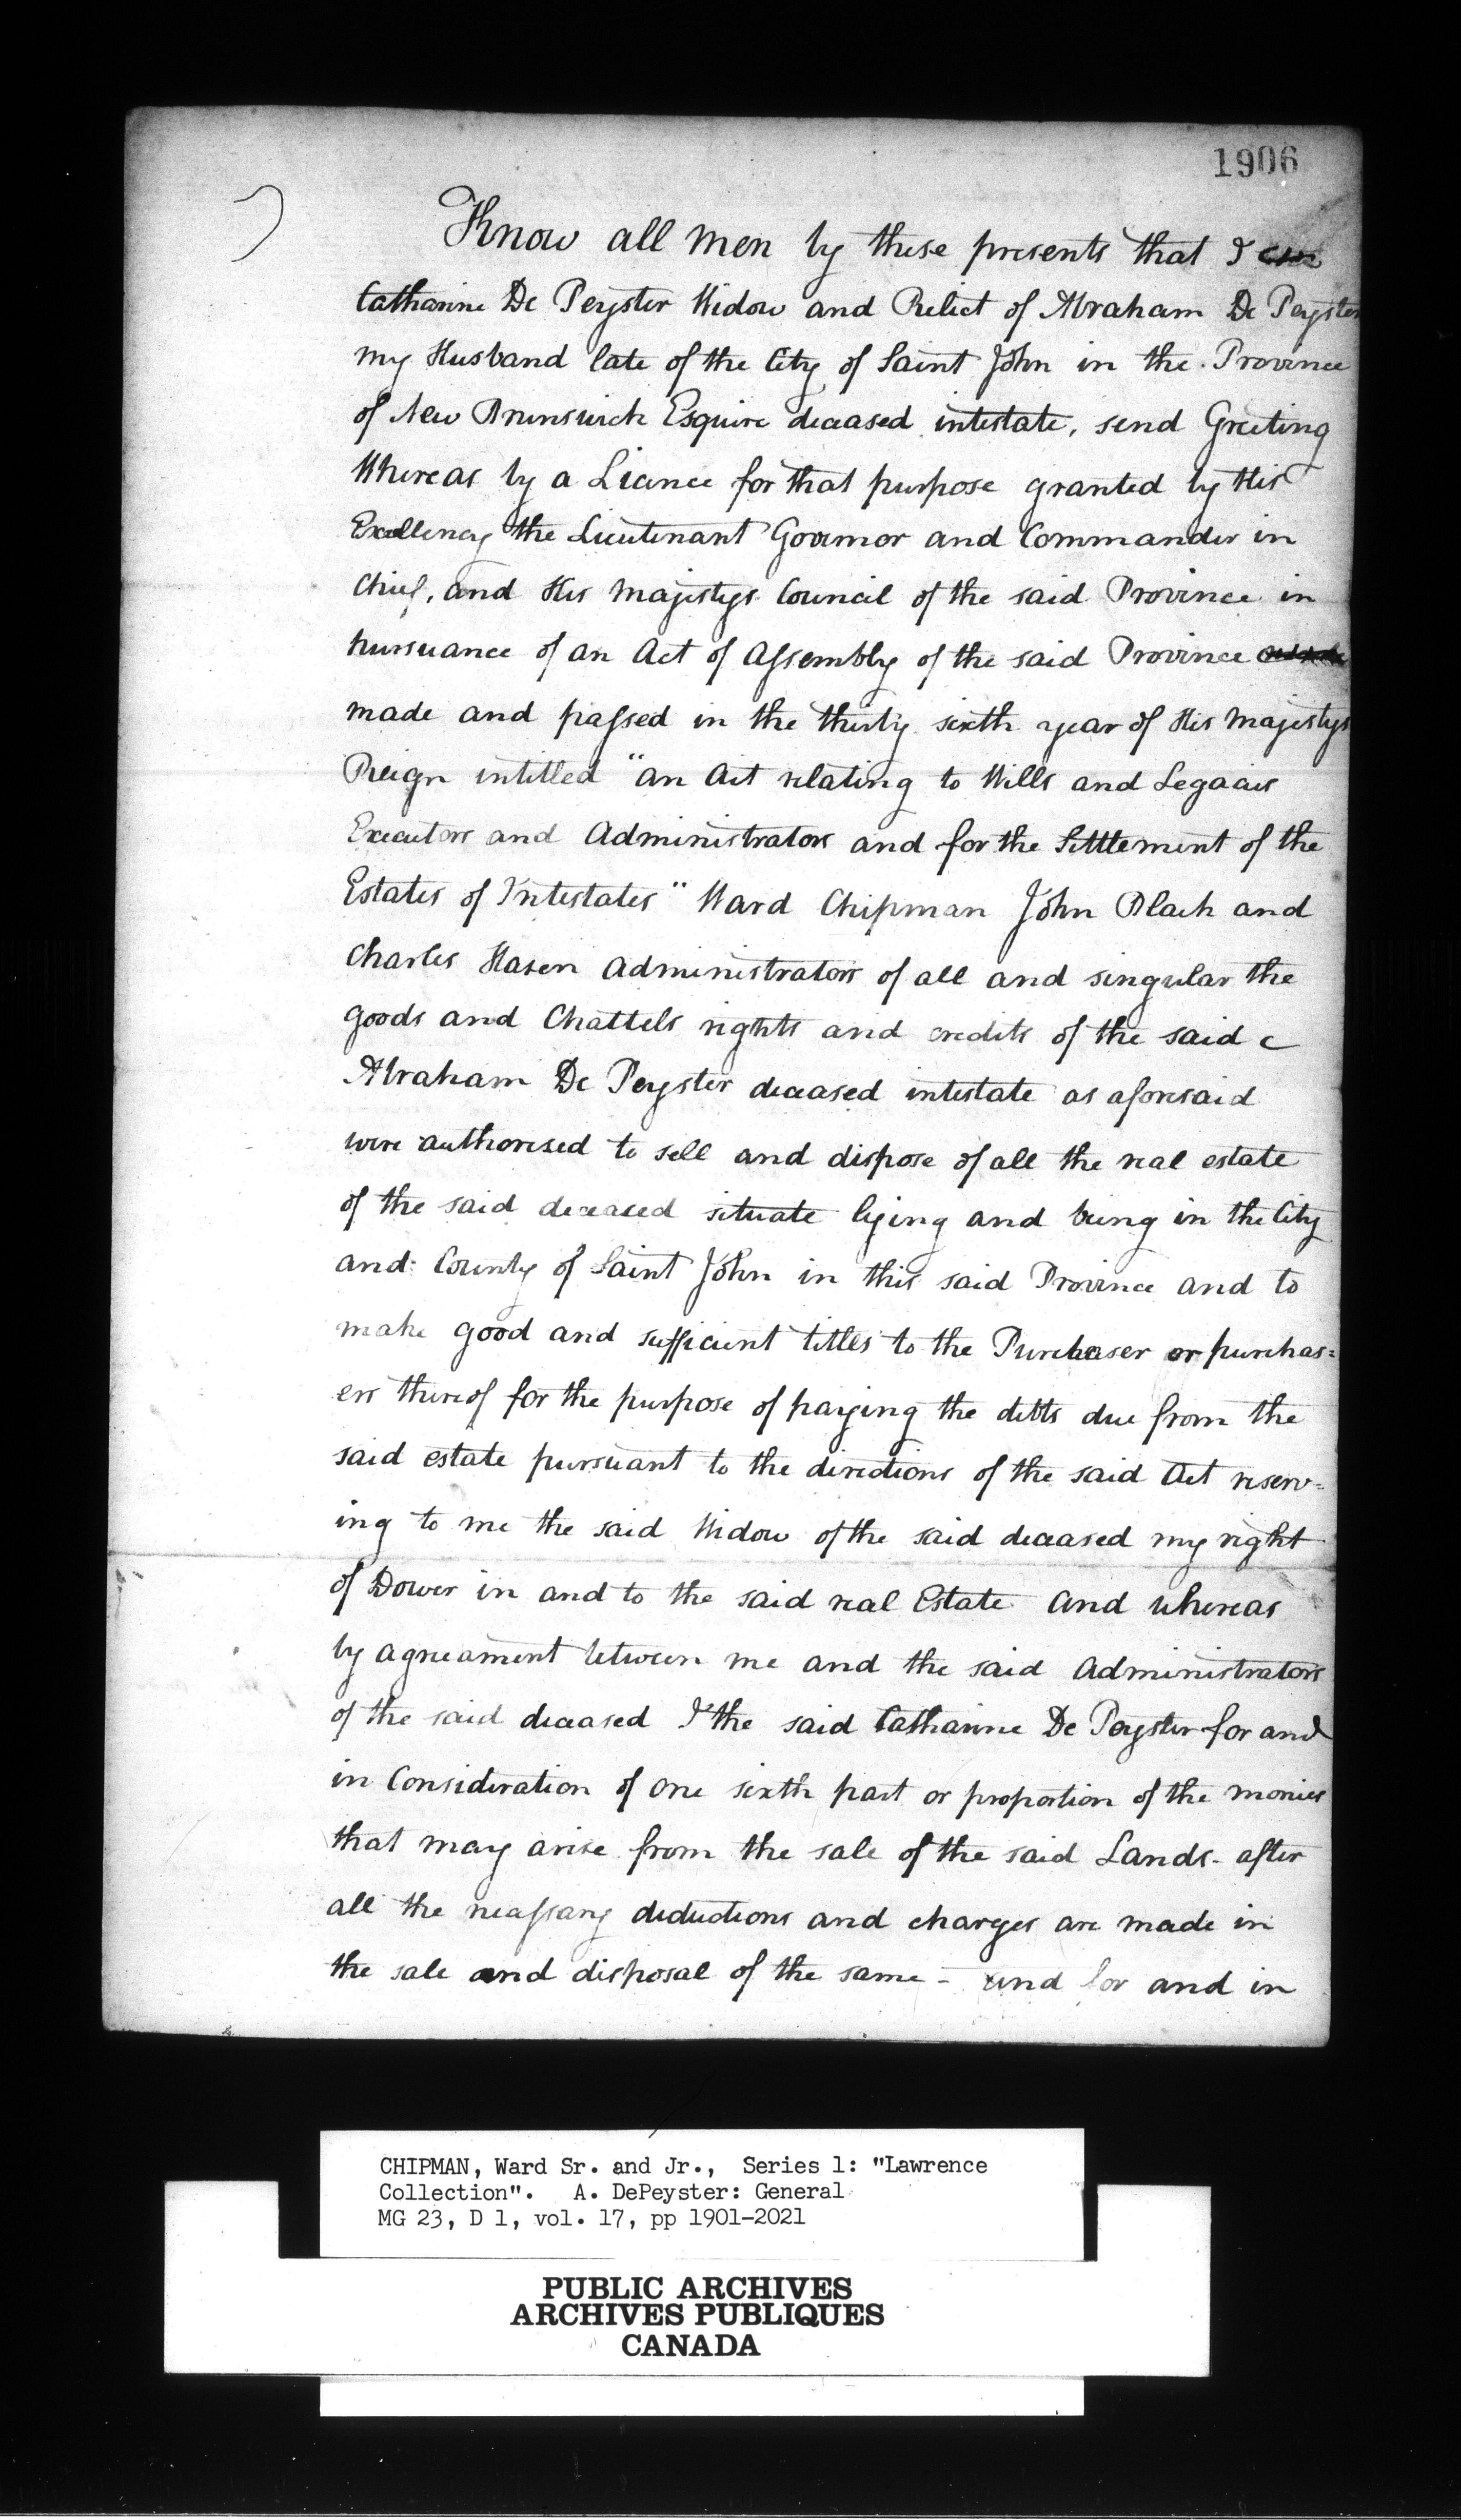 1906
Know all men by these presents that I
Catharine De Peyster Widow and Relict of Abraham De Peyster
my Husband late of the City of Saint John in the Province
of New Brunswick Esquire deceased intestate, send Greeting
Whereas by a Licence for that purpose granted by His
Excellency the Lieutenant Governor and Commander in
Chief, and His Majestys Council of the said Province in
pursuance of an Act of Assembly of the said Province
made and passed in the thirty sixth year of His Majestys
Reign intitled "an Act relating to Wills and Legacies
Executors and Administrators and for the Settlement of the
Estates of Intestates" Ward Chipman John Black and
Charles Hazen Administrators of all and singular the
goods and Chattels rights and credits of the said
Abraham De Peyster deceased intestate as aforesaid
were authorised to sell and dispose of all the real estate
of the said deceased situate lying and being in the City
and County of Saint John in this said Province and to
make good and sufficient titles to the Purchaser or purchas=
ers thereof for the purpose of paying the debts due from the
said estate pursuant to the directions of the said Act reserv=
ing to me the said Widow of the said deceased my right
of Dower in and to the said real Estate and whereas
by agreament between me and the said Administrators
of the said deceased I the said Catharine De Peyster for and
in Consideration of one sixth part or proportion of the monies
that may arise from the sale of the said Lands - after
all the necessary deductions and charges are made in
the sale and disposal of the same - and for and in
CHIPMAN, Ward Sr. and Jr., Series 1: "Lawrence
Collection". A. DePeyster: General
MG 23, D 1, vol. 17, pp 1901-2021
PUBLIC ARCHIVES
ARCHIVES PUBLIQUES
CANADA